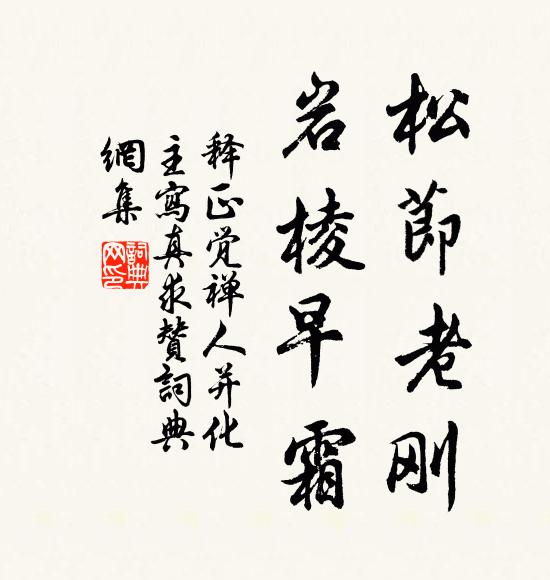 松節老刚
岩棱早霜
释正覚禅人并化
主寫真求贊詞典
網集
詞典
网印